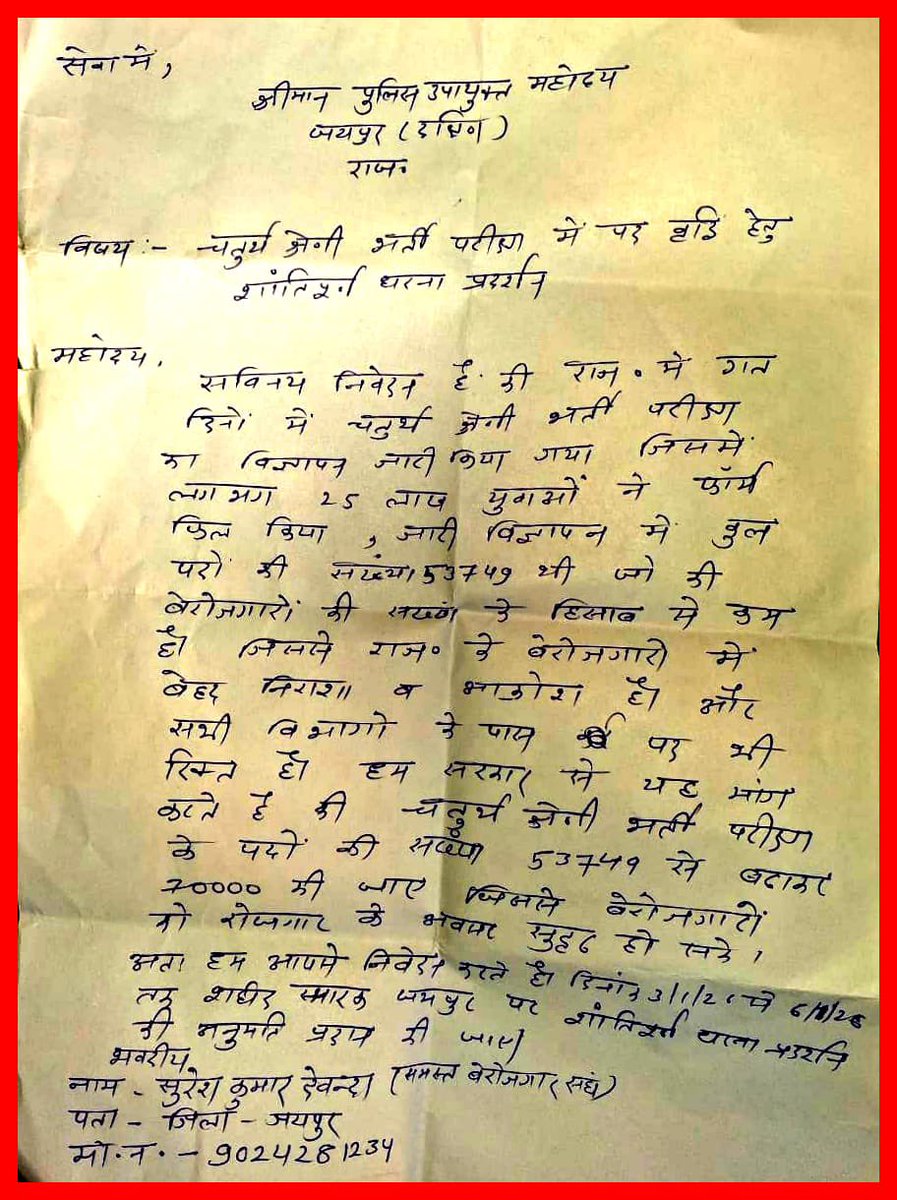 सेवा में,
श्रीमान पुलिस उपायुक्त महोदय
जयपुर (दक्षिण)
राज.
विषय :- चतुर्थ श्रेणी भर्ती परीक्षा में पद वृद्धि हेतु
शांतिपूर्ण धरना प्रदर्शन
महोदय,
सविनय निवेदन है की राज. में गत
दिनों में चतुर्थ श्रेणी भर्ती परीक्षा
का विज्ञापन जारी किया गया जिसमें
लगभग 25 लाख युवाओं ने फॉर्म
फिल किया, जारी विज्ञापन में कुल
पदों की संख्या 53749 थी जो की
बेरोजगारों की संख्या के हिसाब से कम
है। जिससे राज. के बेरोजगारों में
बेहद निराशा व आक्रोश है। और
सभी विभागो के पास पद भी
रिक्त है। हम सरकार से यह मांग
करते है की चतुर्थ श्रेणी भर्ती परीक्षा
के पदों की संख्या 53749 से बढाकर
70000 की जाए जिससे बेरोजगारों
को रोजगार के अवसर सुदृढ हो सके।
अतः हम आपसे निवेदन करते है। दिनांक 3/1/26 से
तक शहीद स्मारक जयपुर पर शांतिपूर्ण धरना प्रदर्शन
की अनुमति प्रदान की जाए।
भवदीय
नाम - सुरेश कुमार देवन्दा (समस्त बेरोजगार संघ)
पता - जिला - जयपुर
मो. न. - 9024281234